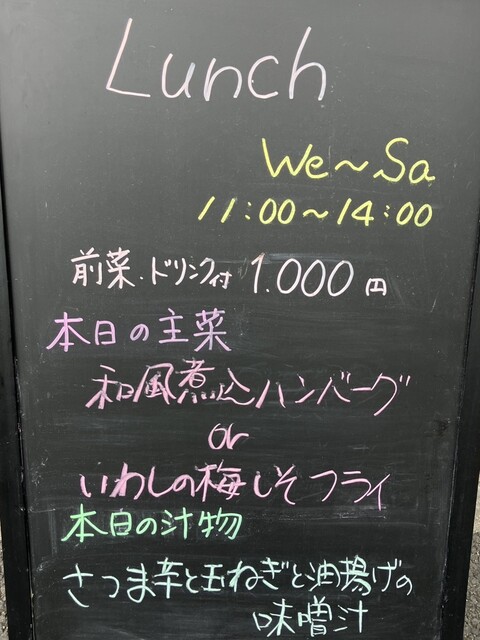 Lunch
We～Sa
11:00～14:00
前菜・ドリンク付 1.000円
本日の主菜
和風煮込ハンバーグ
or
いわしの梅しそフライ
本日の汁物
さつま芋と玉ねぎと油揚げの
味噌汁